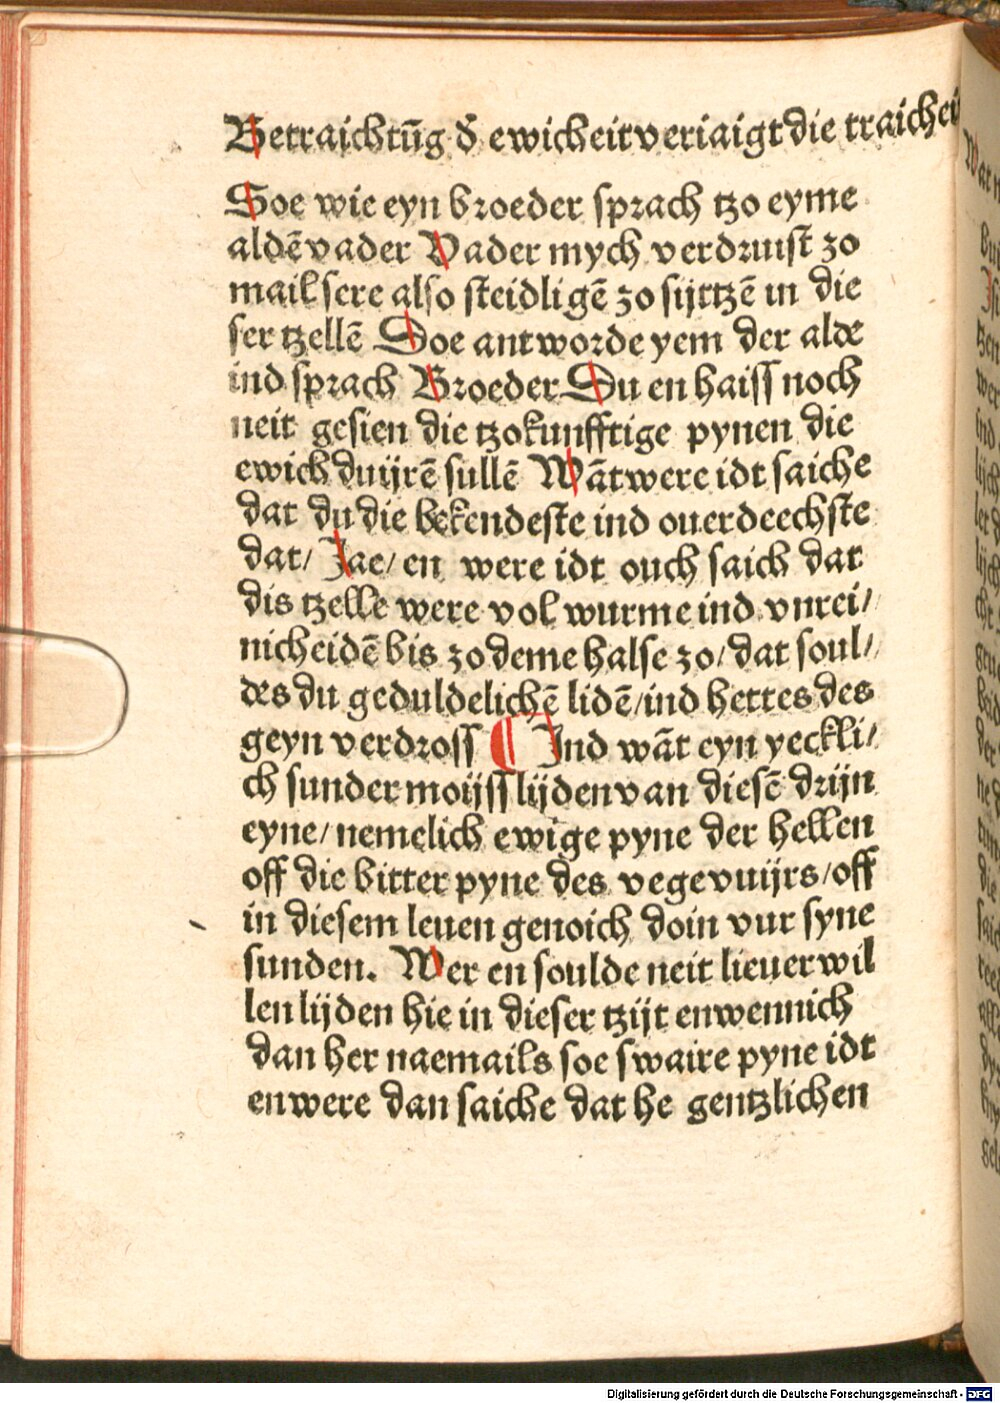 Betraichtūg d̄ ewicheit veriaigt die traicheit
Soe wie eyn broeder sprach tzo eyme
aldē vader Vader mych verdruist zo
mail sere also steidligē zo sijttzē in die
ser tzellē Doe antworde yem der alde
ind sprach Broeder Du en haiss noch
neit gesien die tzokunfftige pynen die
ewich duijrē sullē Wāt were idt saiche
dat du die bekendeste ind ouerdeechste
dat/ Jae/ en were idt ouch saich dat
dis tzelle were vol wurme ind vnrei/
nicheidē bis zo deme halse zo/ dat soul/
des du geduldelichē lidē/ ind hettes des
geyn verdross ¶ Ind wāt eyn yeckli/
ch sunder moijss lijden van diesē drijn
eyne/ nemelich ewige pyne der hellen
off die bitter pyne des vegevuijrs/ off
in diesem leuen genoich doin vur syne
sunden. Wer en soulde neit lieuer wil
len lijden hie in dieser tzijt enwennich
dan her naemails soe swaire pyne idt
enwere dan saiche dat he gentzlichen
Digitalisierung gefördert durch die Deutsche Forschungsgemeinschaft - DFG